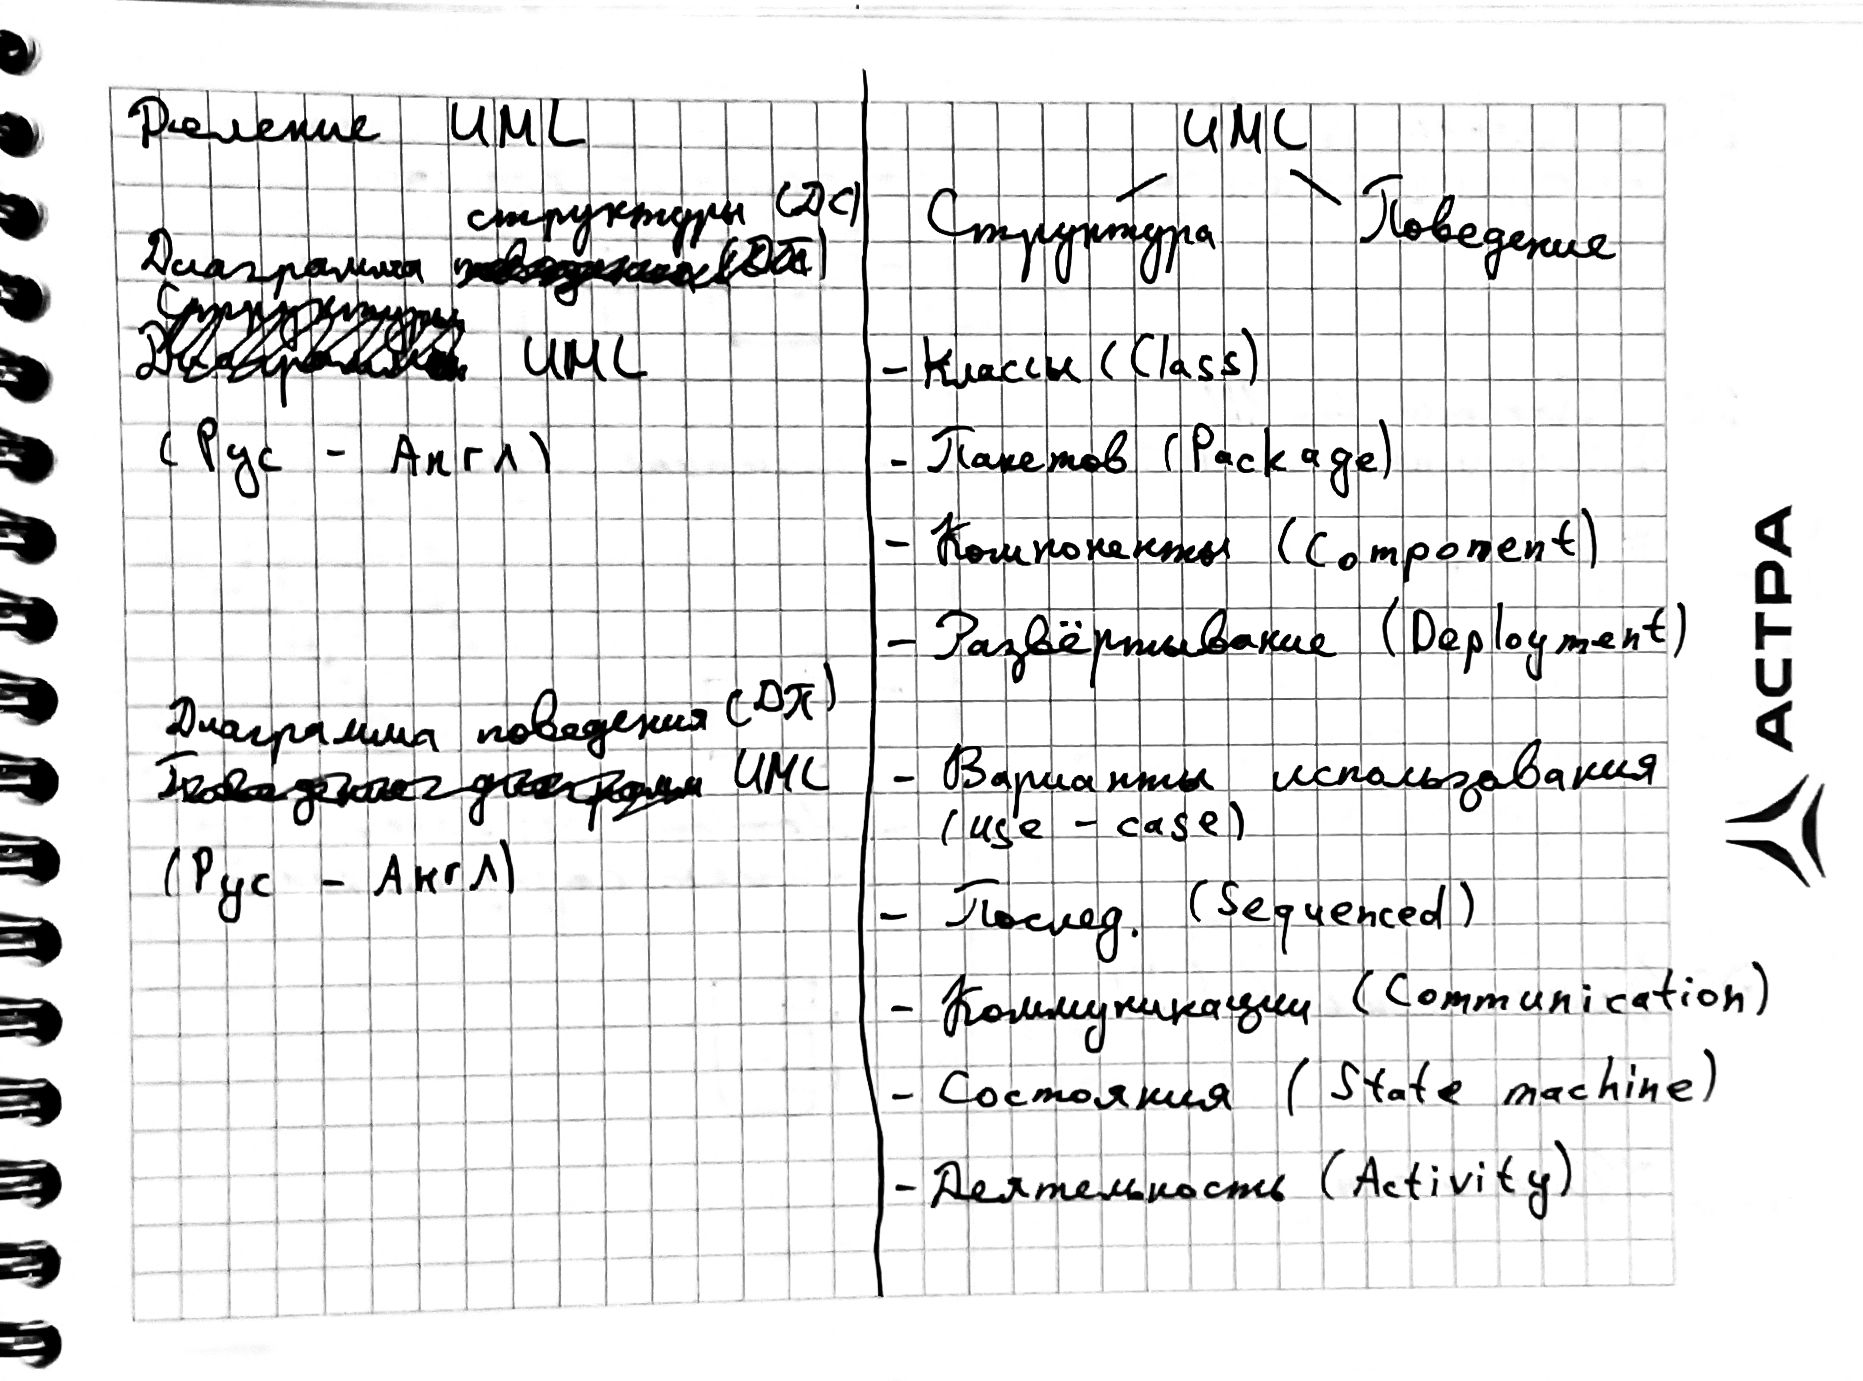 Деление UML
структуры (ДС)
Диаграмма
UML
(Рус - Англ)
Диаграмма поведения (ДП)
UML
(Рус - Англ)
UML
Структура Поведение
- Классы (Class)
- Пакетов (Package)
- Компоненты (Component)
- Развёртывание (Deployment)
- Варианты использования
(use - case)
- Послед. (Sequenced)
- Коммуникации (Communication)
- Состояния (State machine)
- Деятельность (Activity)
АСТРА